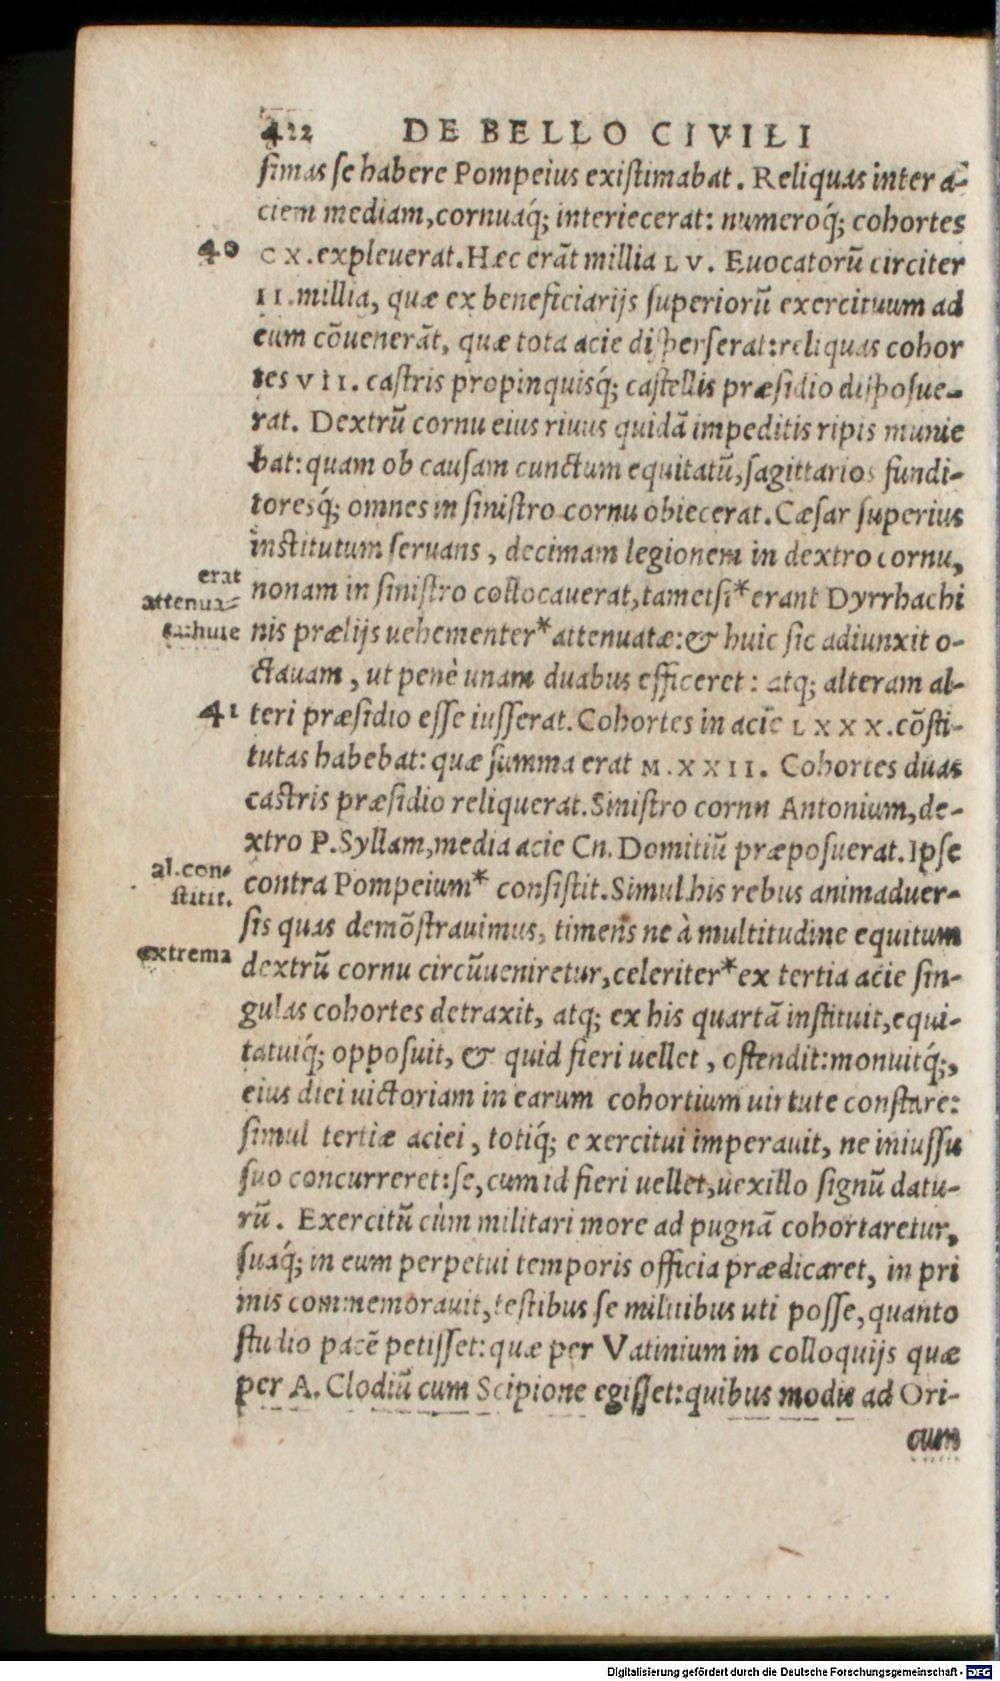 422 DE BELLO CIVILI
simas se habere Pompeius existimabat. Reliquas inter a-
ciem mediam, cornuaq́; interiecerat: numeroq́; cohortes
40 CX. expleuerat. Hæc erãt millia LV. Euocatorũ circiter
II. millia, quæ ex beneficiarijs superiorũ exercituum ad
eum cõuenerãt, quæ tota acie disperserat: reliquas cohor
tes VII. castris propinquisq́; castellis præsidio disposue-
rat. Dextrũ cornu eius riuus quidã impeditis ripis munie
bat: quam ob causam cunctum equitatũ, sagittarios fundi-
toresq́; omnes in sinistro cornu obiecerat. Cæsar superius
institutum seruans, decimam legionem in dextro cornu,
erat
attenua=
nonam in sinistro collocauerat, tametsi*erant Dyrrhachi
ta:huic
nis prælijs uehementer*attenuatæ: & huic sic adiunxit o-
ctauam, ut penè unam duabus efficeret: atq; alteram al-
41 teri præsidio esse iusserat. Cohortes in aciẽ LXXX. cõsti-
tutas habebat: quæ summa erat M.XXII. Cohortes duas
castris præsidio reliquerat. Sinistro cornn Antonium, de-
xtro P. Syllam, media acie Cn. Domitiũ præposuerat. Ipse
al.con=
stitit.
contra Pompeium* consistit. Simul his rebus animaduer-
sis quas demõstrauimus, timens ne à multitudine equitum
extrema
dextrũ cornu circũueniretur, celeriter*ex tertia acie sin-
gulas cohortes detraxit, atq; ex his quartã instituit, equi-
tatuiq́; opposuit, & quid fieri uellet, ostendit: monuitq́;,
eius diei uictoriam in earum cohortium uirtute constare:
simul tertiæ aciei, totiq́; exercitui imperauit, ne iniussu
suo concurreret: se, cum id fieri uellet, uexillo signũ datu-
rũ. Exercitũ cùm militari more ad pugnã cohortaretur,
suaq́; in eum perpetui temporis officia prædicaret, in pri
mis commemorauit, testibus se militibus uti posse, quanto
studio pacẽ petisset: quæ per Vatinium in colloquijs quæ
per A. Clodiũ cum Scipione egisset: quibus modis ad Ori-
cum
Digitalisierung gefördert durch die Deutsche Forschungsgemeinschaft - DFG